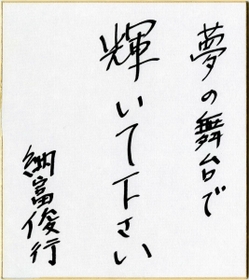 夢の舞台で
輝いて下さい
納富俊行